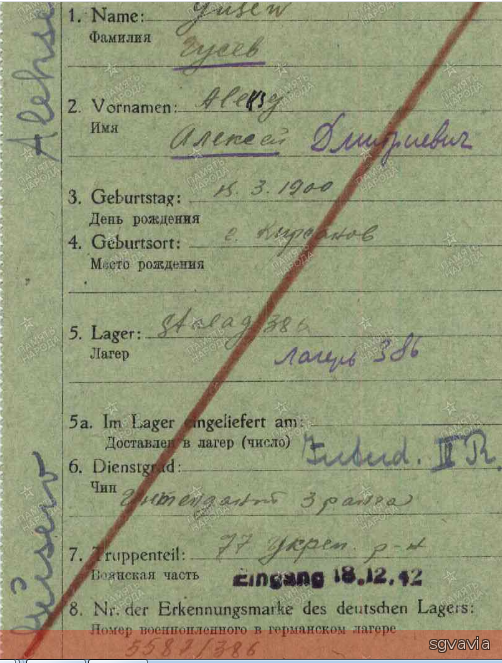 1. Name: Gusew
Фамилия
Гусев
2. Vornamen:
Имя
Алексей Дмитриевич
3. Geburtstag: 3. 1900
День рождения
4. Geburtsort: г. Кирсанов
Место рождения
5. Lager: Stalag 386
Лагер
лагерь 386
5a. Im Lager eingeliefert am:
Доставлен в лагер (число)
6. Dienstgrad: Intend. III R
Чин
Интендант 3 ранга
7. Truppenteil: 77 укреп. р-н
Воинская часть
Eingang 18.12.42
8. Nr. der Erkennungsmarke des deutschen Lagers:
Номер военнопленного в германском лагере
/386
Gusew
sgvavia